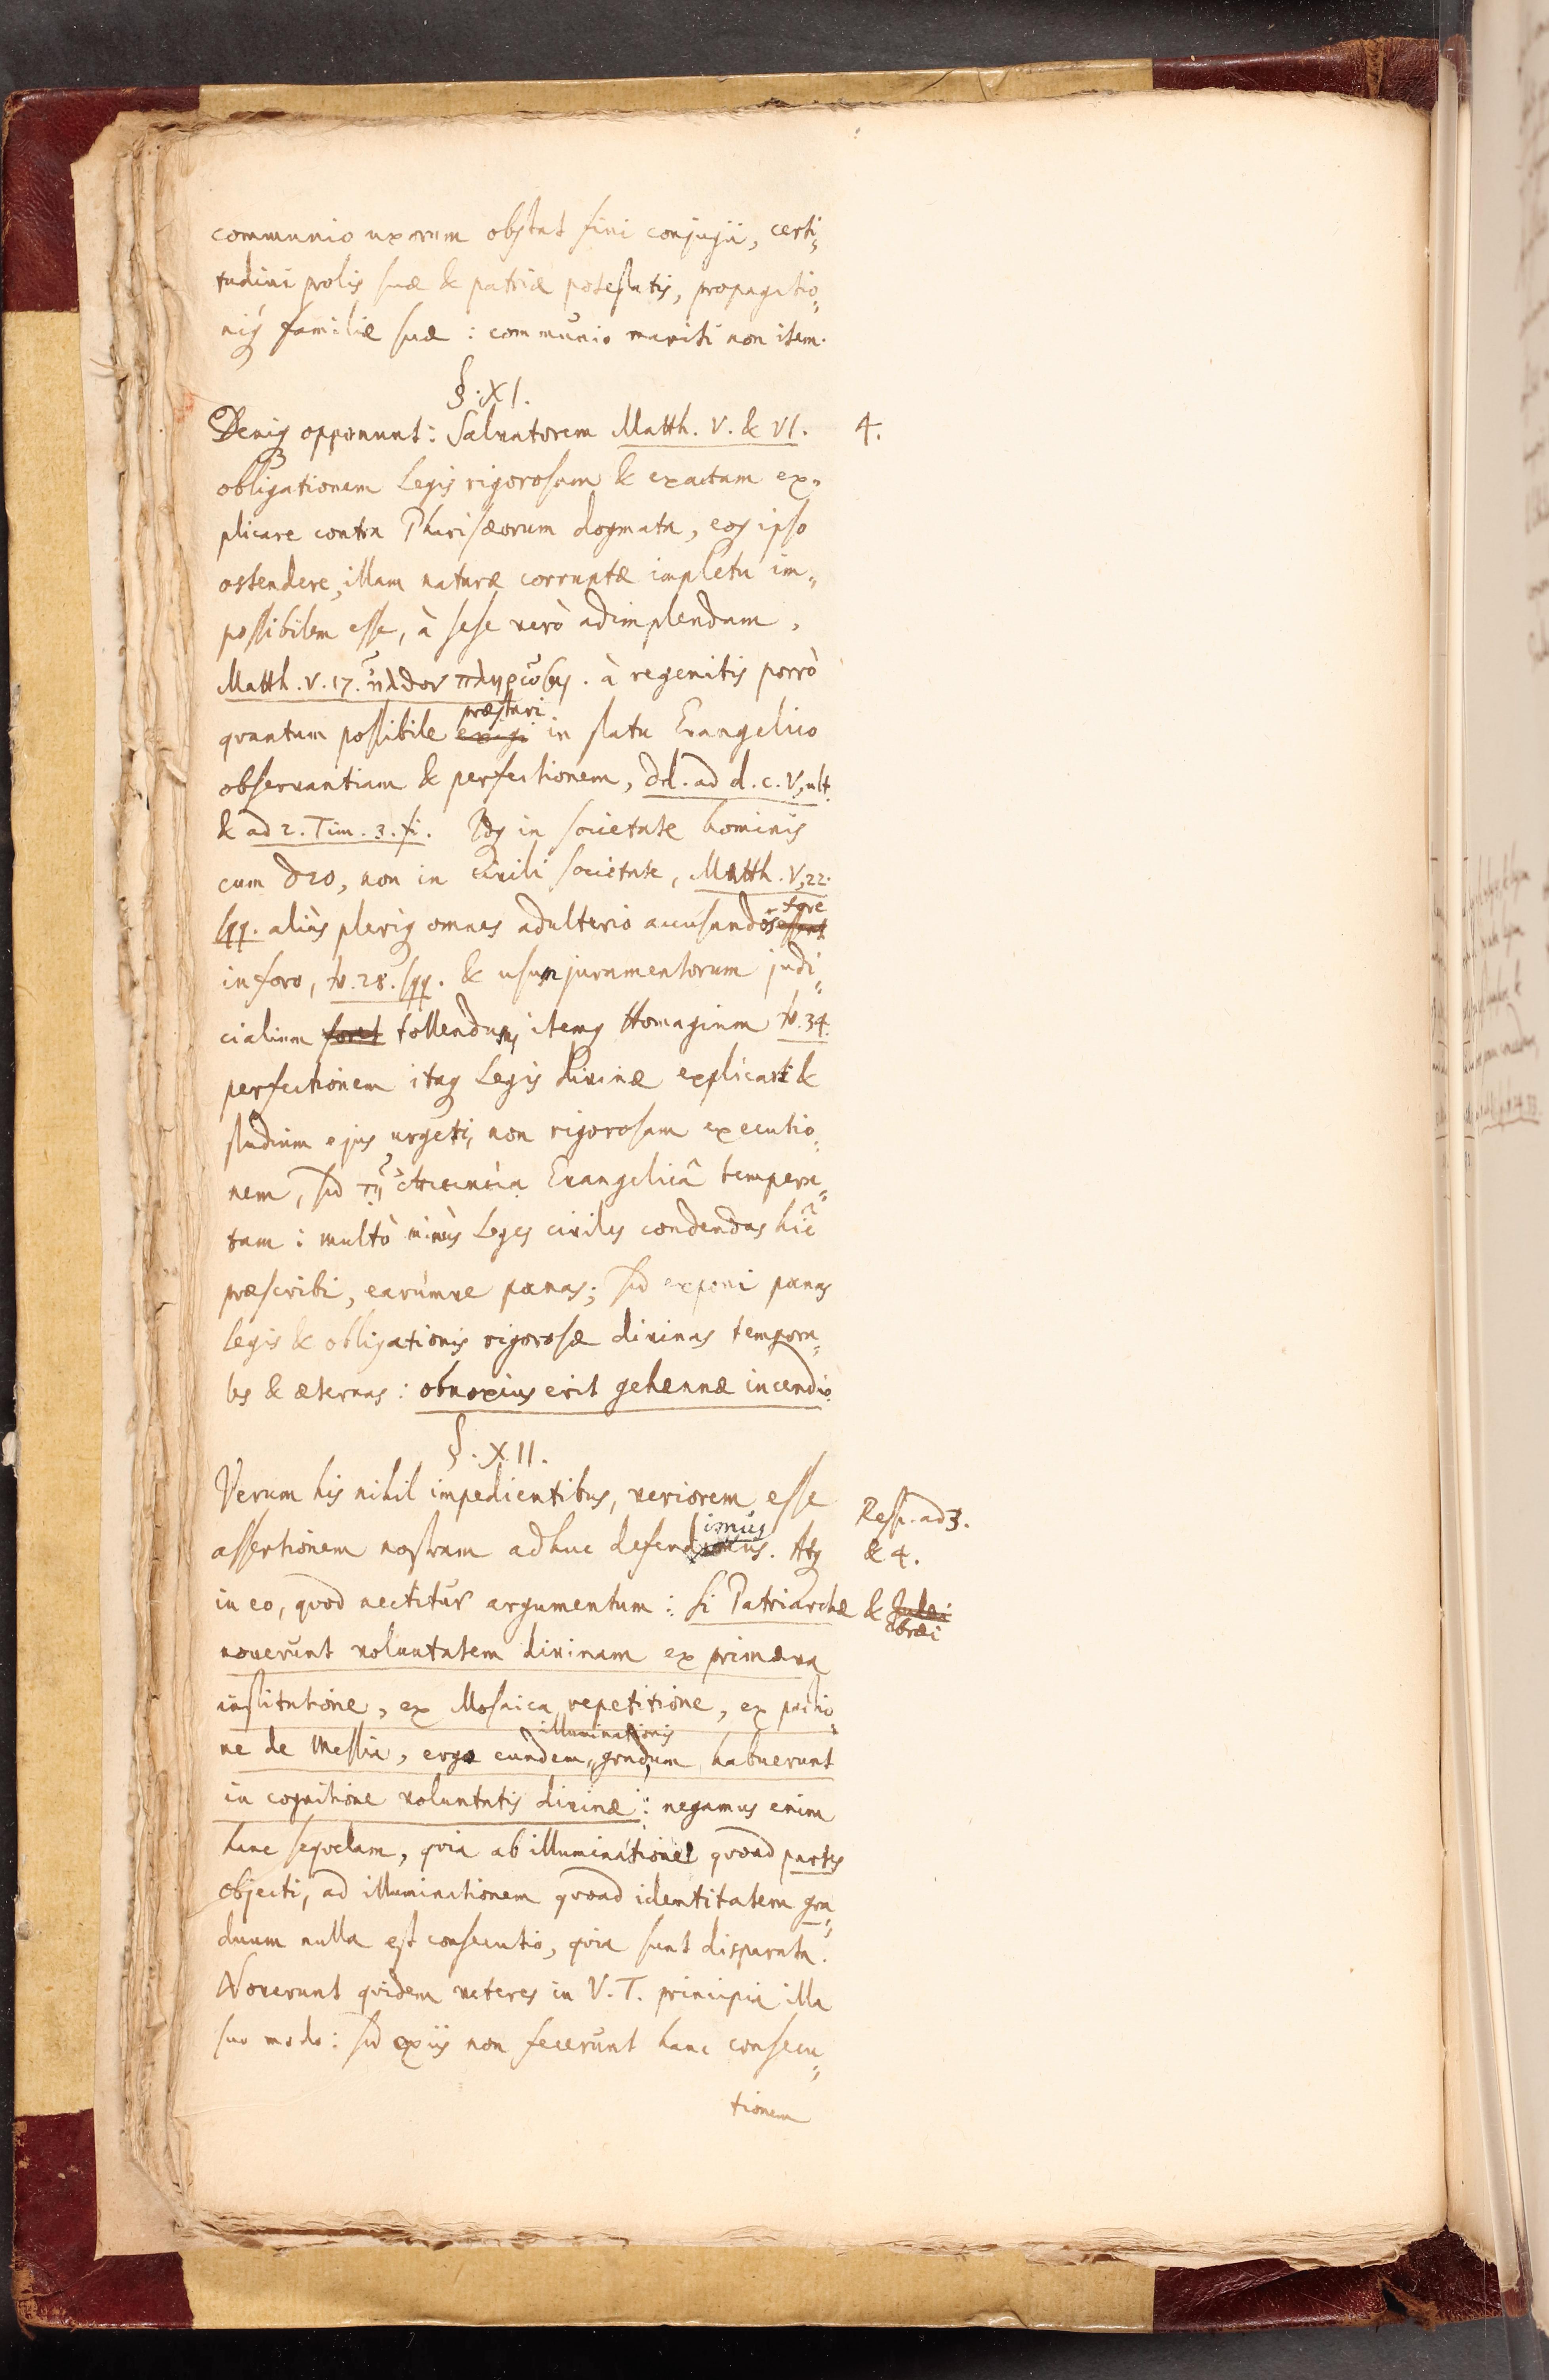 communio uxorum obstat fini conjugii, certi„
tudini prolis suæ & patriæ potestatis, propagatio„
niq; familiæ suæ : communio mariti non item.
§. XI.
Deniq; opponunt: Salvatorem Matth. V. & VI. 4.
obligationem Legis rigorosam & exactam ex„
plicare contra Pharisæorum dogmata, eoq; ipso
ostendere, illam naturæ corruptæ impletu im„
possibilem esse, à sese verò adimplendam,
Matth. V. 17. ἦλθον πληρῶσαι. à regenitis porrò
præstari
quantum possibile exigi in statu Evangelico
observantiam & perfectionem, dd. ad d. c. V, ult.
& ad 2. Tim. 3. fi. Idq; in societate hominis
cum Deo, non in civili societate, Matth. V, 22.
fore
sqq. aliàs pleriq; omnes adulterio accusandos essent
in foro, v. 28. sqq. & usum juramentorum judi„
cialium foret tollendum, itemq; Homagium v. 34.
perfectionem itaq; Legis divinæ explicari &
studium ejus urgeri, non rigorosam executio„
nem, sed τῇ ἐπιεικείᾳ Evangelicâ tempera„
tam: multò minùs Leges civiles condendas hîc
præscribi, earúmve pœnas; sed exponi pœnas
legis & obligationis rigorosæ divinas tempora„
les & æternas: obnoxius erit gehennæ incendio.
§. XII.
Verum his nihil impedientibus, veriorem esse
Resp. ad 3.
& 4.
imus
assertionem nostram adhuc defend. Atq;
in eo, quod nectitur argumentum: Si Patriarchæ & Judæi
Ebræi
noverunt voluntatem divinam ex primæva
institutione, ex Mosaica repetitione, ex pactio„
illuminationis
ne de Messia, ergo eundem gradum habuerunt
in cognitione voluntatis divinæ: negamus enim
hanc sequelam, quia ab illuminatione quoad partes
objecti, ad illuminationem quoad identitatem gra„
duum nulla est consecutio, quia sunt disparata.
Noverunt quidem veteres in V. T. principia illa
suo modo: sed ex iis non fecerunt hanc consecu„
tionem